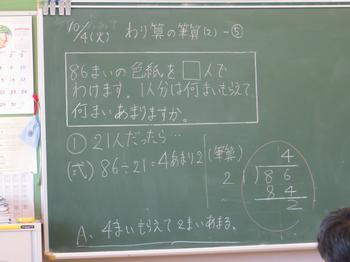 10/4(火) わり算の筆算(2)-⑤
86まいの色紙を□人で
わけます。1人分は何まいもらえて
何まいあまりますか。
① 21人だったら…
(式) 86÷21=4あまり2 (筆算)
4
2 86
84
2
A、4まいもらえて2まいあまる。